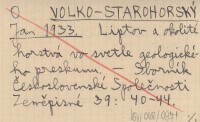 O VOLKO-STAROHORSKÝ
Jan 1933. Liptov a okolité
horstvo vo svetle geologické-
ho preskumu. – Sborník
Československé Společnosti
Zeměpisné 39: 40-44.